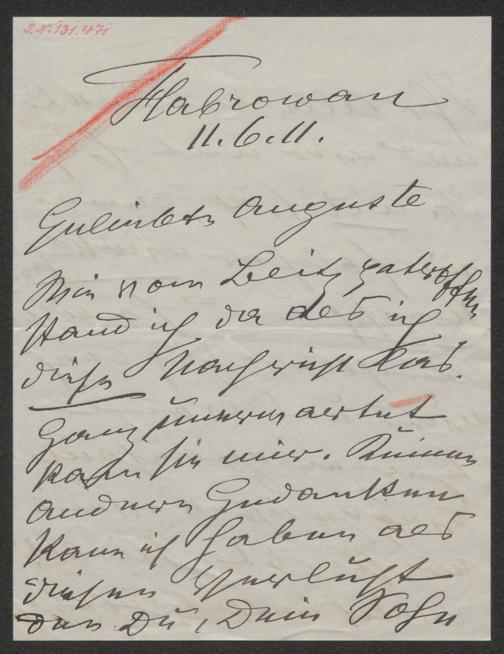 I.N. 131.471
Habrowan
11.6.11.
Geliebte Auguste
Wie vom Blitz getroffen
stand ich da als ich
diese Nachricht las.
Ganz unerwartet
kam sie mir. Keinen
anderen Gedanken
kann ich haben als
diesen Verlust
den Du, Dein Sohn